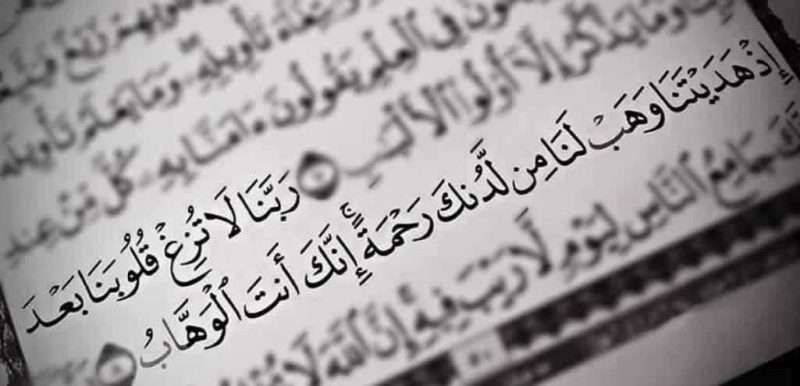 زَيْغٌ
تَأْوِيلِهِۦ وَمَا يَعْلَمُ تَأْوِيلَهُۥٓ
فِى ٱلْعِلْمِ يَقُولُونَ ءَامَنَّا بِهِۦ كُلٌّ مِّنْ عِندِ
وَمَا يَذَّكَّرُ إِلَّآ أُو۟لُوا۟ ٱلْأَلْبَـٰبِ رَبَّنَا لَا تُزِغْ قُلُوبَنَا بَعْدَ
إِذْ هَدَيْتَنَا وَهَبْ لَنَا مِن لَّدُنكَ رَحْمَةً ۚ إِنَّكَ أَنتَ ٱلْوَهَّابُ
جَامِعُ ٱلنَّاسِ لِيَوْمٍ لَّا رَيْبَ فِيهِ ۚ إِنَّ ٱللَّهَ لَا